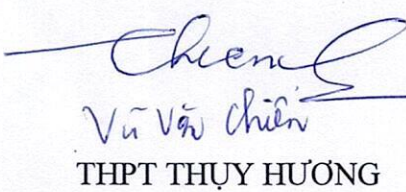 Chien
Vũ Văn Chiên
THPT THỤY HƯƠNG